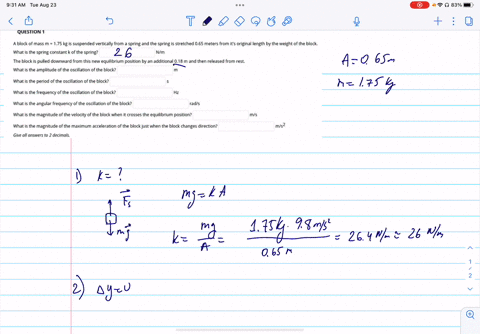 9:31 AM Tue Aug 23
83%
QUESTION 1
A block of mass m = 1.75 kg is suspended vertically from a spring and the spring is stretched 0.65 meters from it's original length by the weight of the block.
What is the spring constant k of the spring? 26 N/m
The block is pulled downward from this new equilibrium position by an additional 0.18 m and then released from rest.
What is the amplitude of the oscillation of the block? m
What is the period of the oscillation of the block? s
What is the frequency of the oscillation of the block? Hz
What is the angular frequency of the oscillation of the block? rad/s
What is the magnitude of the velocity of the block when it crosses the equilibrium position? m/s
What is the magnitude of the maximum acceleration of the block just when the block changes direction? m/s²
Give all answers to 2 decimals.
A=0.65m
m=1.75kg
1) k=?
Fs
mg
mg=kA
k= mg/A = 1.75kg·9.8m/s²/0.65m = 26.4N/m ≈ 26 N/m
2) Δy=0
1
2